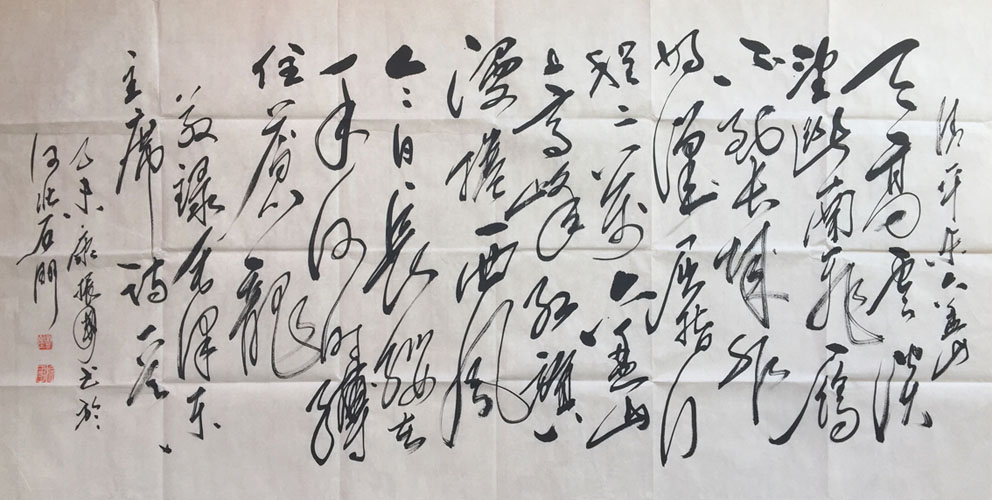 清平乐六盘山
天高雲淡
望断南飛雁
不到长城非
好漢屈指行
程二萬六盘山
上高峰红旗
漫捲西风
今日长缨在
手何时缚
住蒼龍
敬録毛泽东
主席诗一首
乙未康振國书於
河北石門